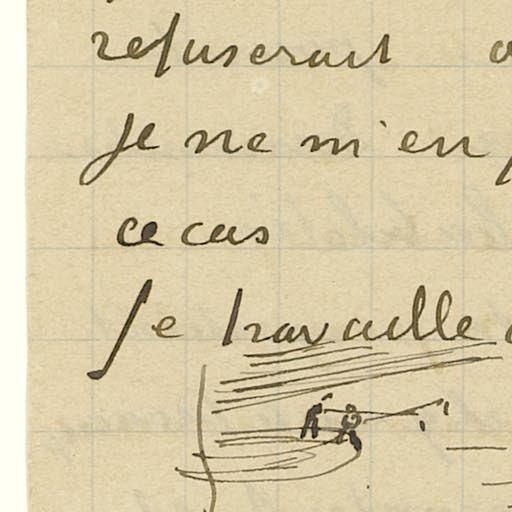 refuserait
Je ne m'en
ce cas
Je travaille